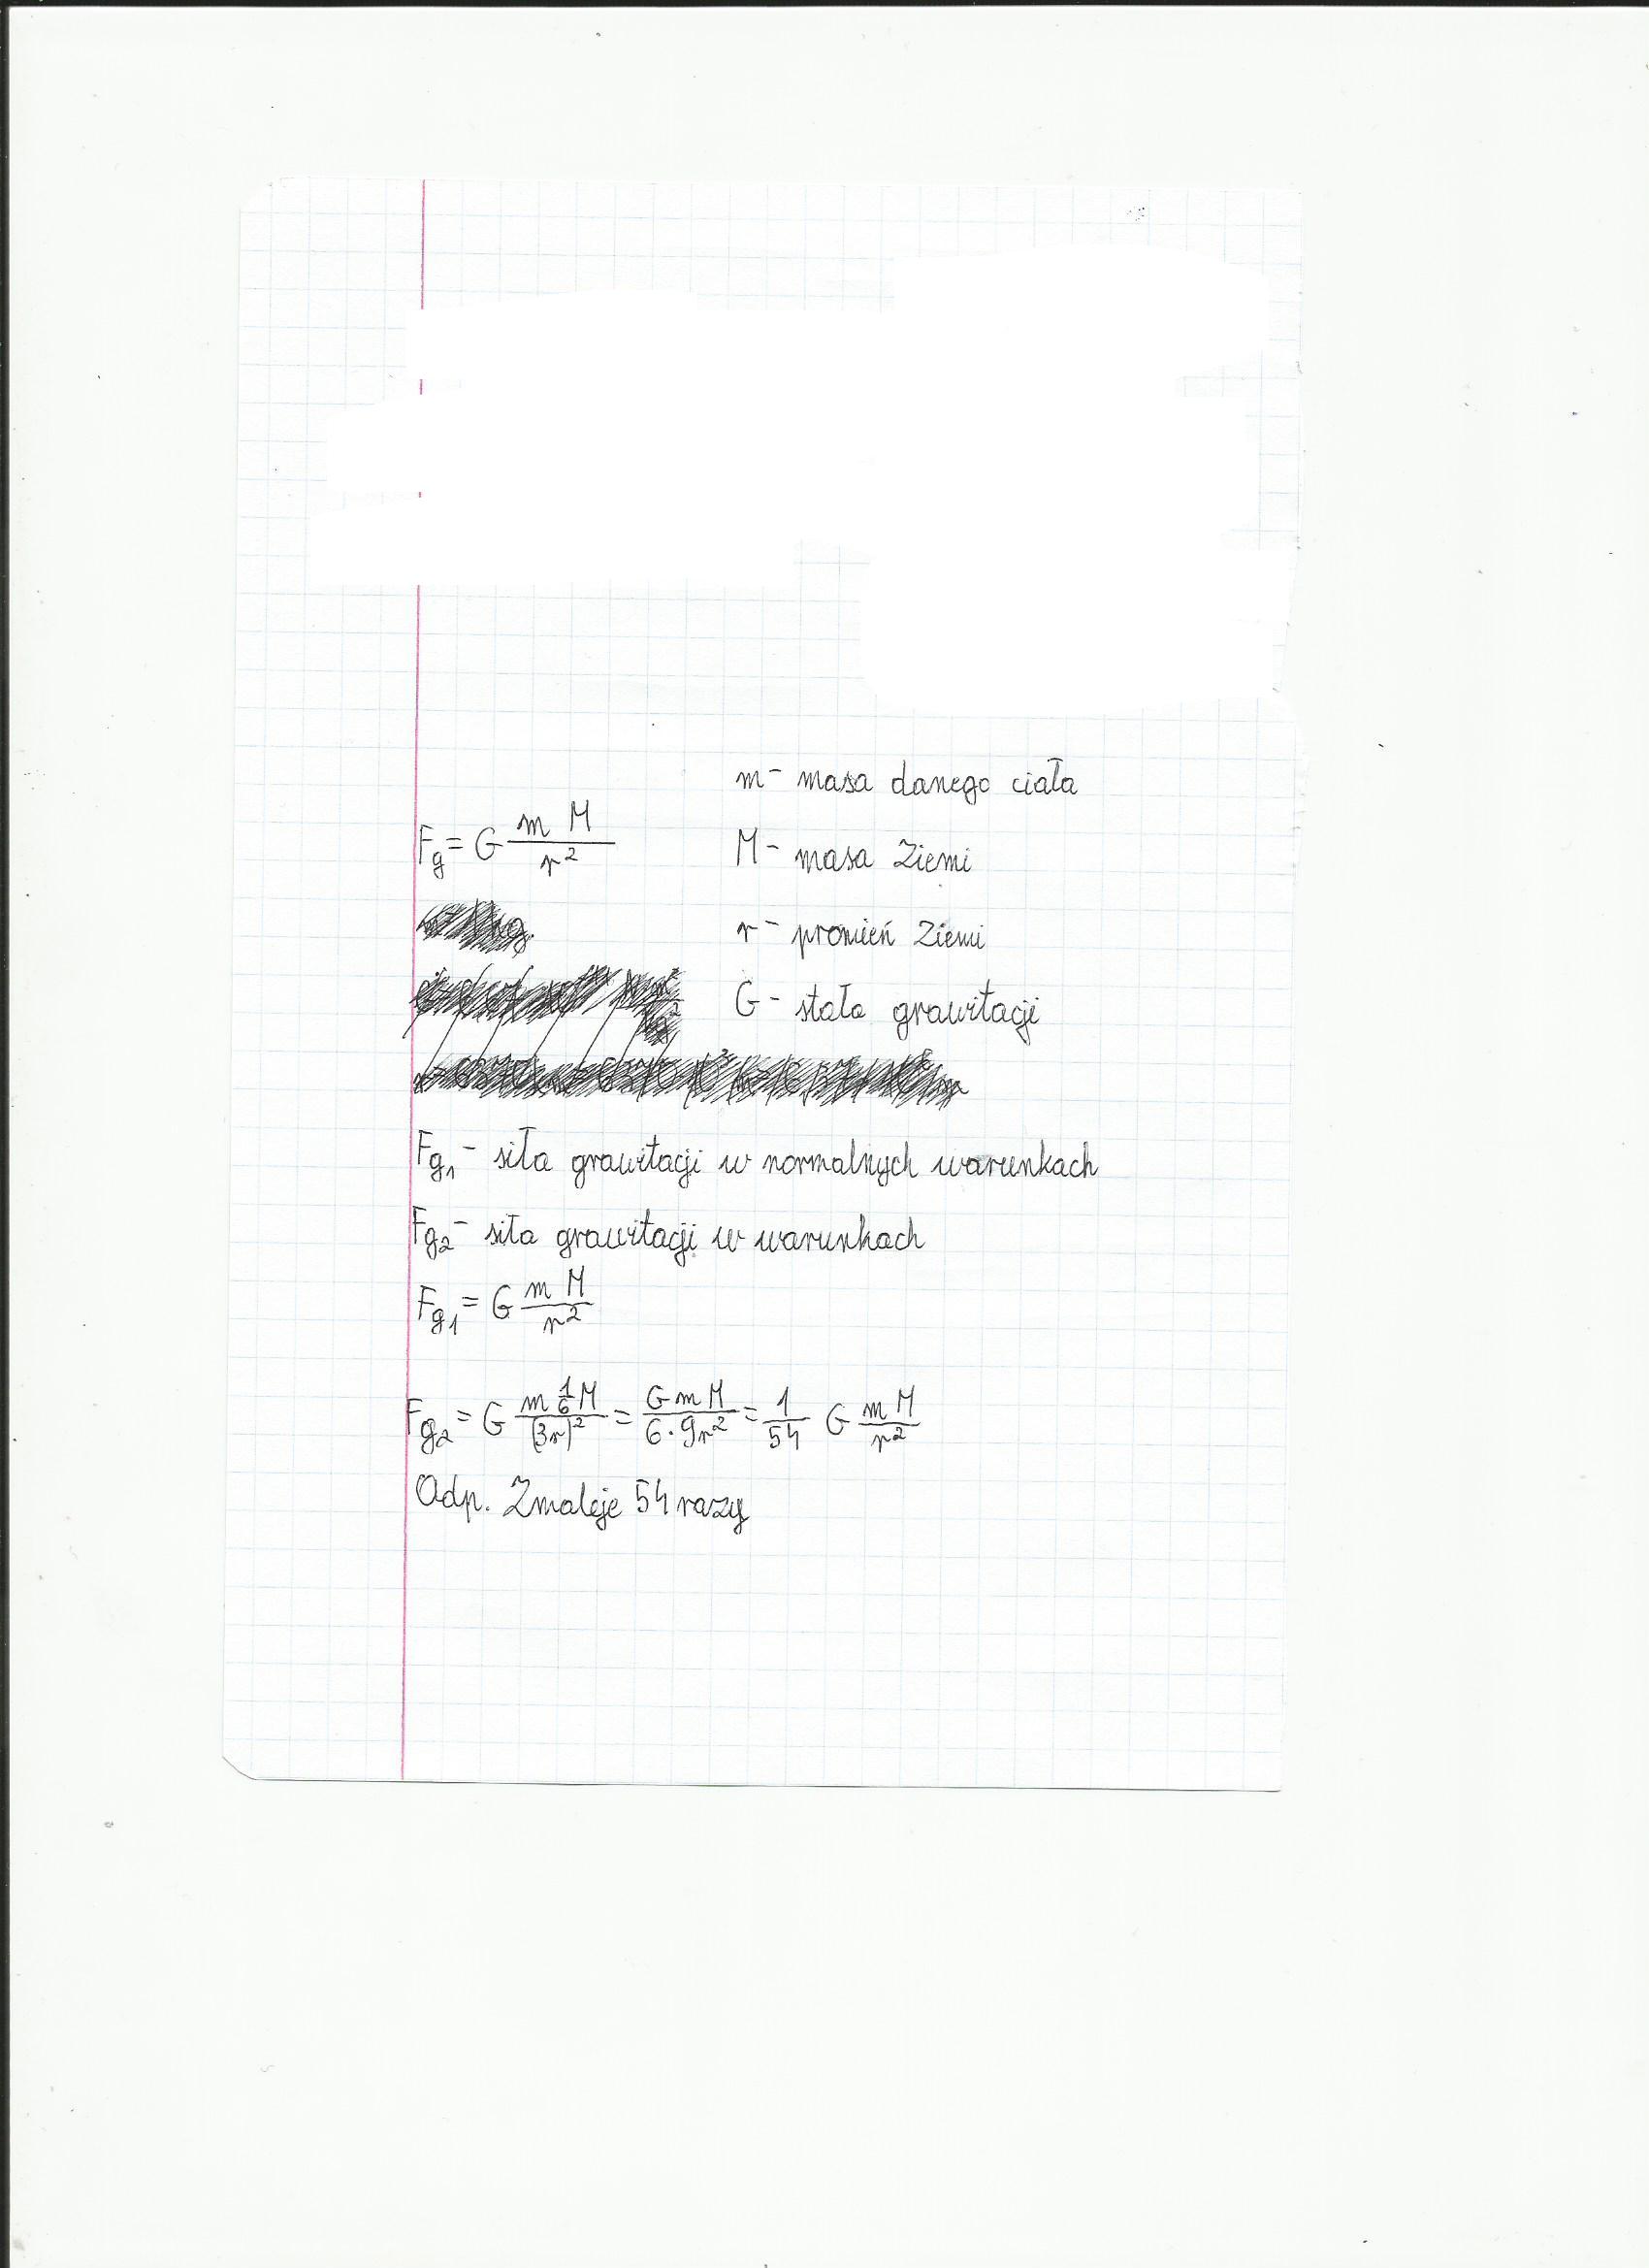 m - masa danego ciała
Fg = G \frac{m M}{r^2}
M - masa Ziemi
r - promień Ziemi
G - stała grawitacji
Fg1 - siła grawitacji w normalnych warunkach
Fg2 - siła grawitacji w warunkach
Fg1 = G \frac{m M}{r^2}
Fg2 = G \frac{m \frac{1}{6} M}{(3r)^2} = \frac{G m M}{6 \cdot 9r^2} = \frac{1}{54} G \frac{m M}{r^2}
Odp. Zmaleje 54 razy